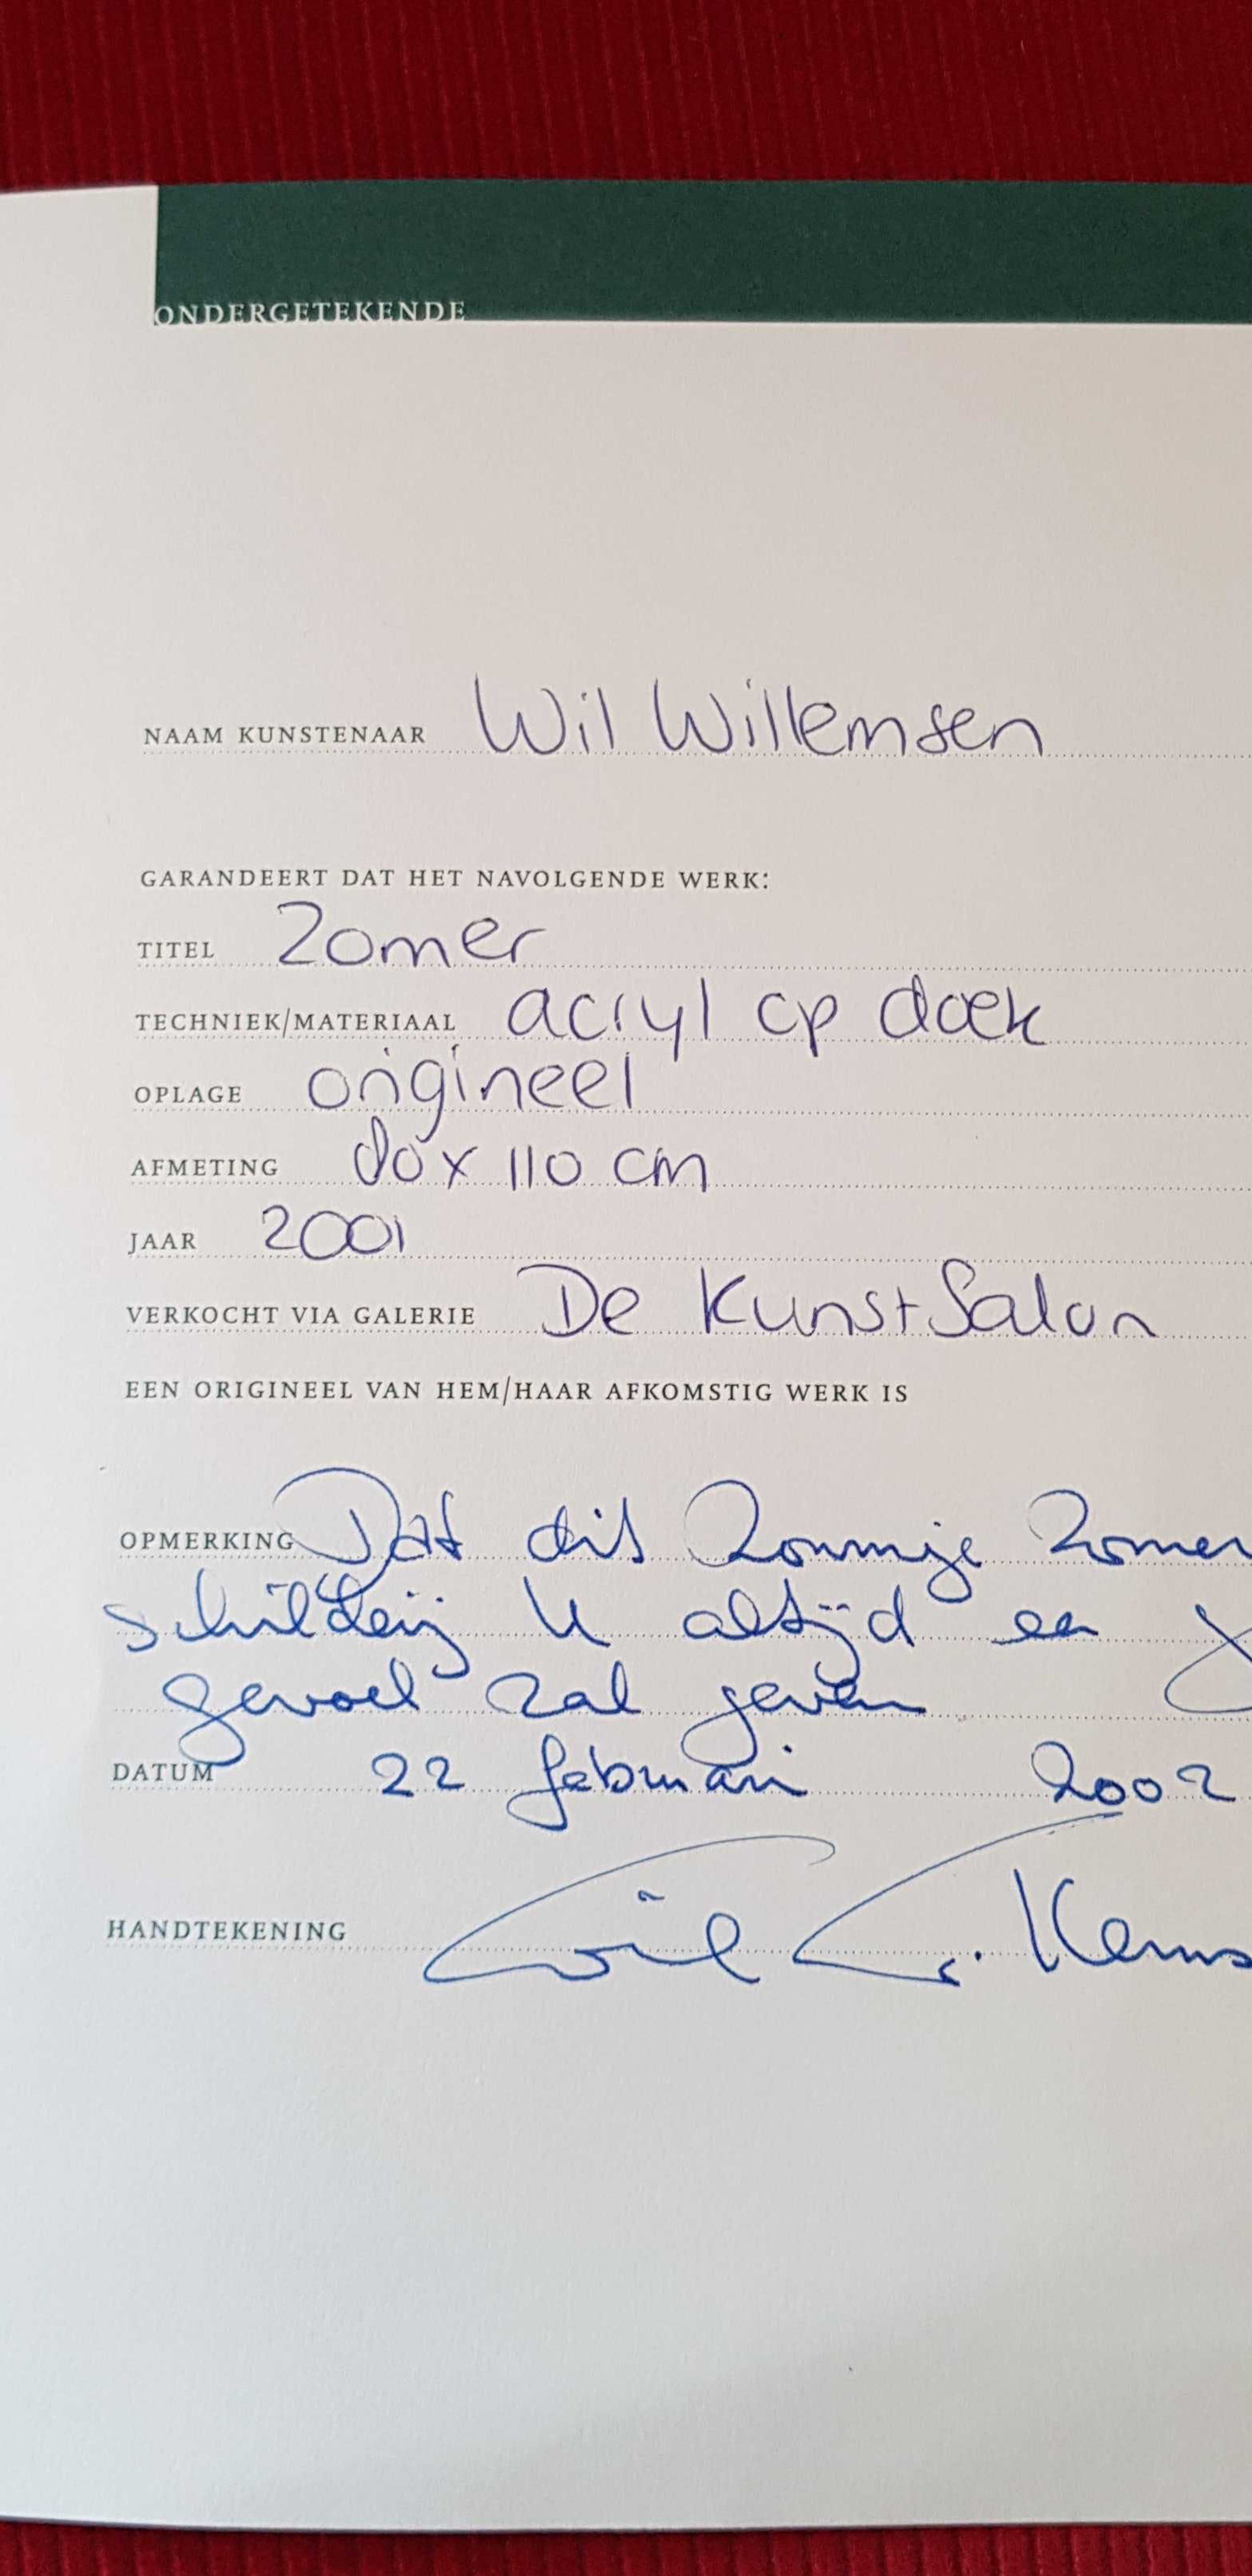 ONDERGETEKENDE
NAAM KUNSTENAAR Wil Willemsen
GARANDEERT DAT HET NAVOLGENDE WERK:
TITEL Zomer
TECHNIEK/MATERIAAL acryl op doek
OPLAGE origineel
AFMETING 80 x 110 cm
JAAR 2001
VERKOCHT VIA GALERIE De KunstSalon
EEN ORIGINEEL VAN HEM/HAAR AFKOMSTIG WERK IS
OPMERKING Dat dit zonnige zomer
schilderij U altijd een
gevoel zal geven
DATUM 22 februari 2002
HANDTEKENING Wil